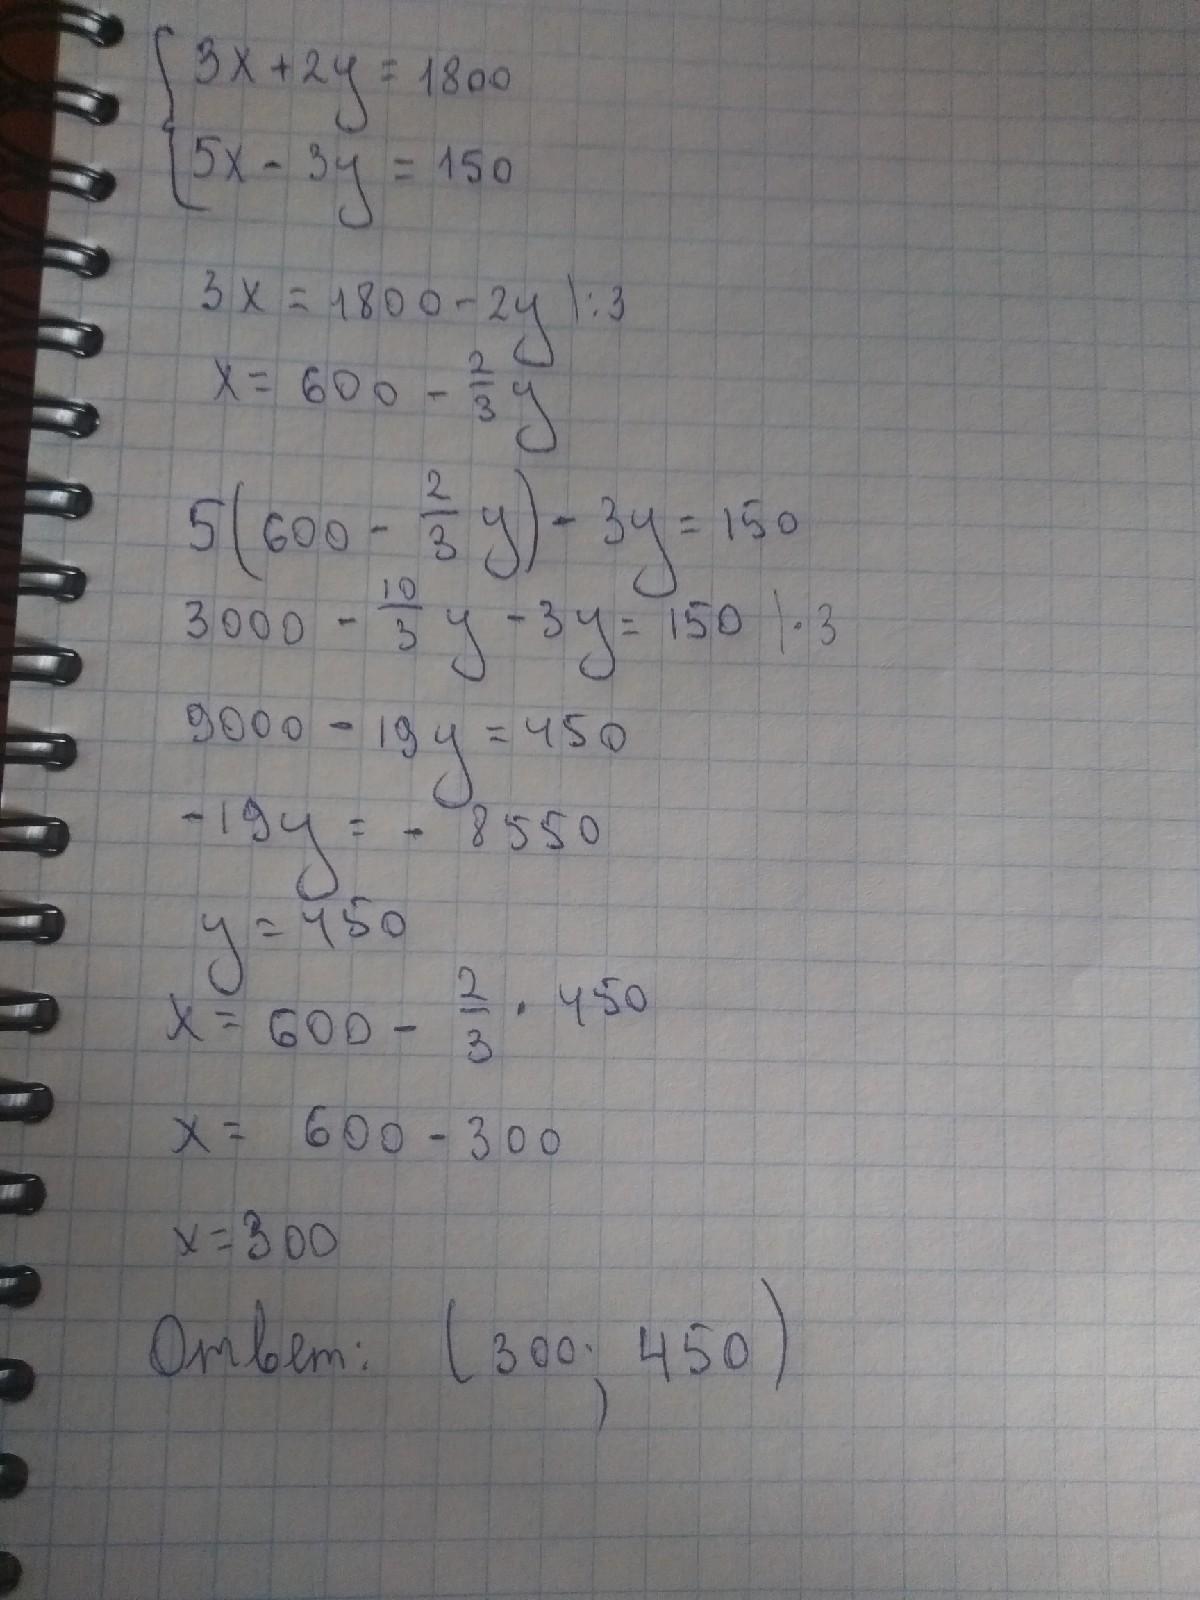 { 3x + 2y = 1800
5x - 3y = 150
3x = 1800 - 2y | : 3
x = 600 - 2/3 y
5(600 - 2/3 y) - 3y = 150
3000 - 10/3 y - 3y = 150 | · 3
9000 - 19y = 450
-19y = - 8550
y = 450
x = 600 - 2/3 · 450
x = 600 - 300
x = 300
Ответ: (300; 450)